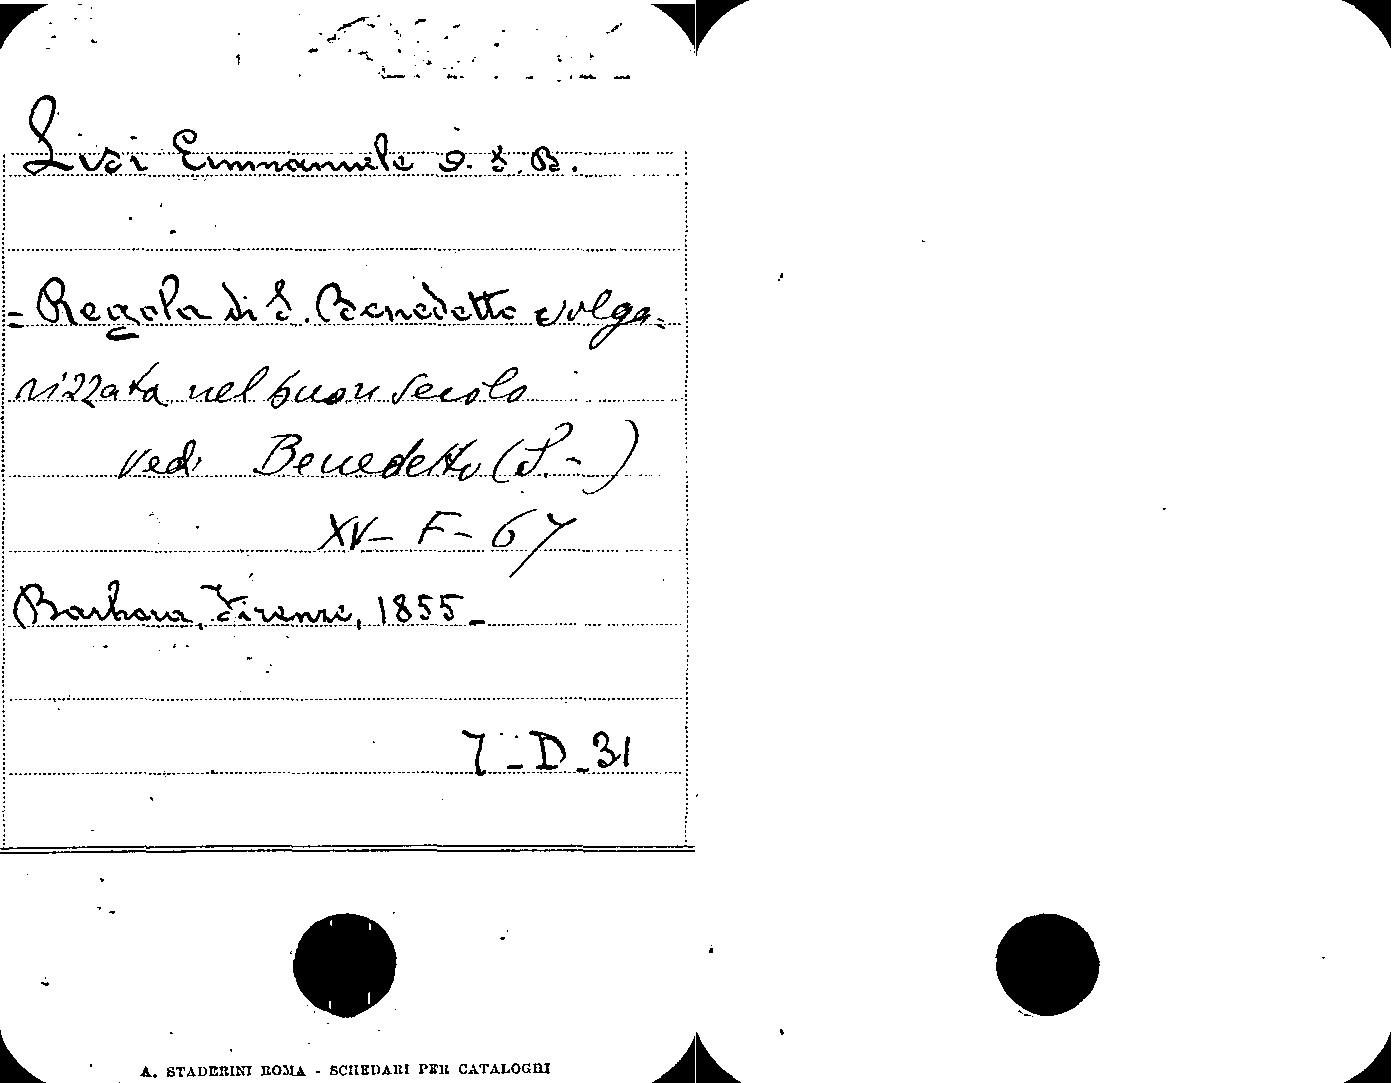 Lisi Emmanuele O. S. B.
= Regola di S. Benedetto volga=
rizzata nel buon secolo
vedi Benedetto (S. - )
XV - F - 67
Barbera, Firenze, 1855 -
7 - D - 31
A. STADERINI ROMA - SCHEDARI PER CATALOGHI